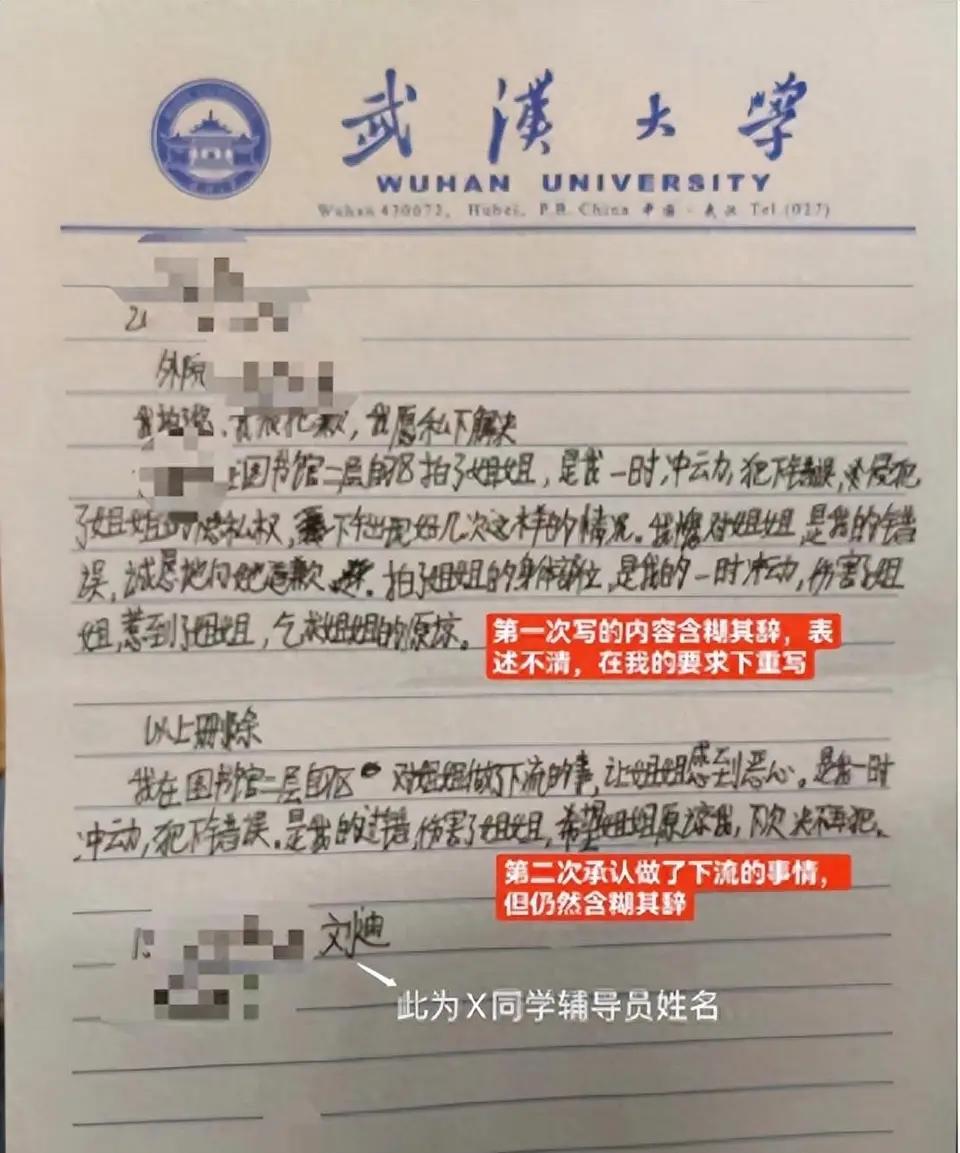 武漢大学
WUHAN UNIVERSITY
Wuhan 430072, Hubei, P.R. China 中国·武汉 Tel (027)
外院
我愿私下解决
图书馆二层自习区拍了姐姐，是我一时冲动，犯下错误，侵犯
了姐姐的隐私权，下出现好几次这样的情况。我愧对姐姐，是我的错
误，诚恳地向她道歉。拍了姐姐的身体部位，是我的一时冲动，伤害了姐
姐，惹到了姐姐，乞求姐姐的原谅。
第一次写的内容含糊其辞，表
述不清，在我的要求下重写
以上删除
我在图书馆二层自习区对姐姐做了下流的事，让姐姐感到恶心。是我一时
冲动，犯下错误。是我的过错，伤害了姐姐，希望姐姐原谅我，下次决不再犯。
第二次承认做了下流的事情，
但仍然含糊其辞
刘迪
此为X同学辅导员姓名